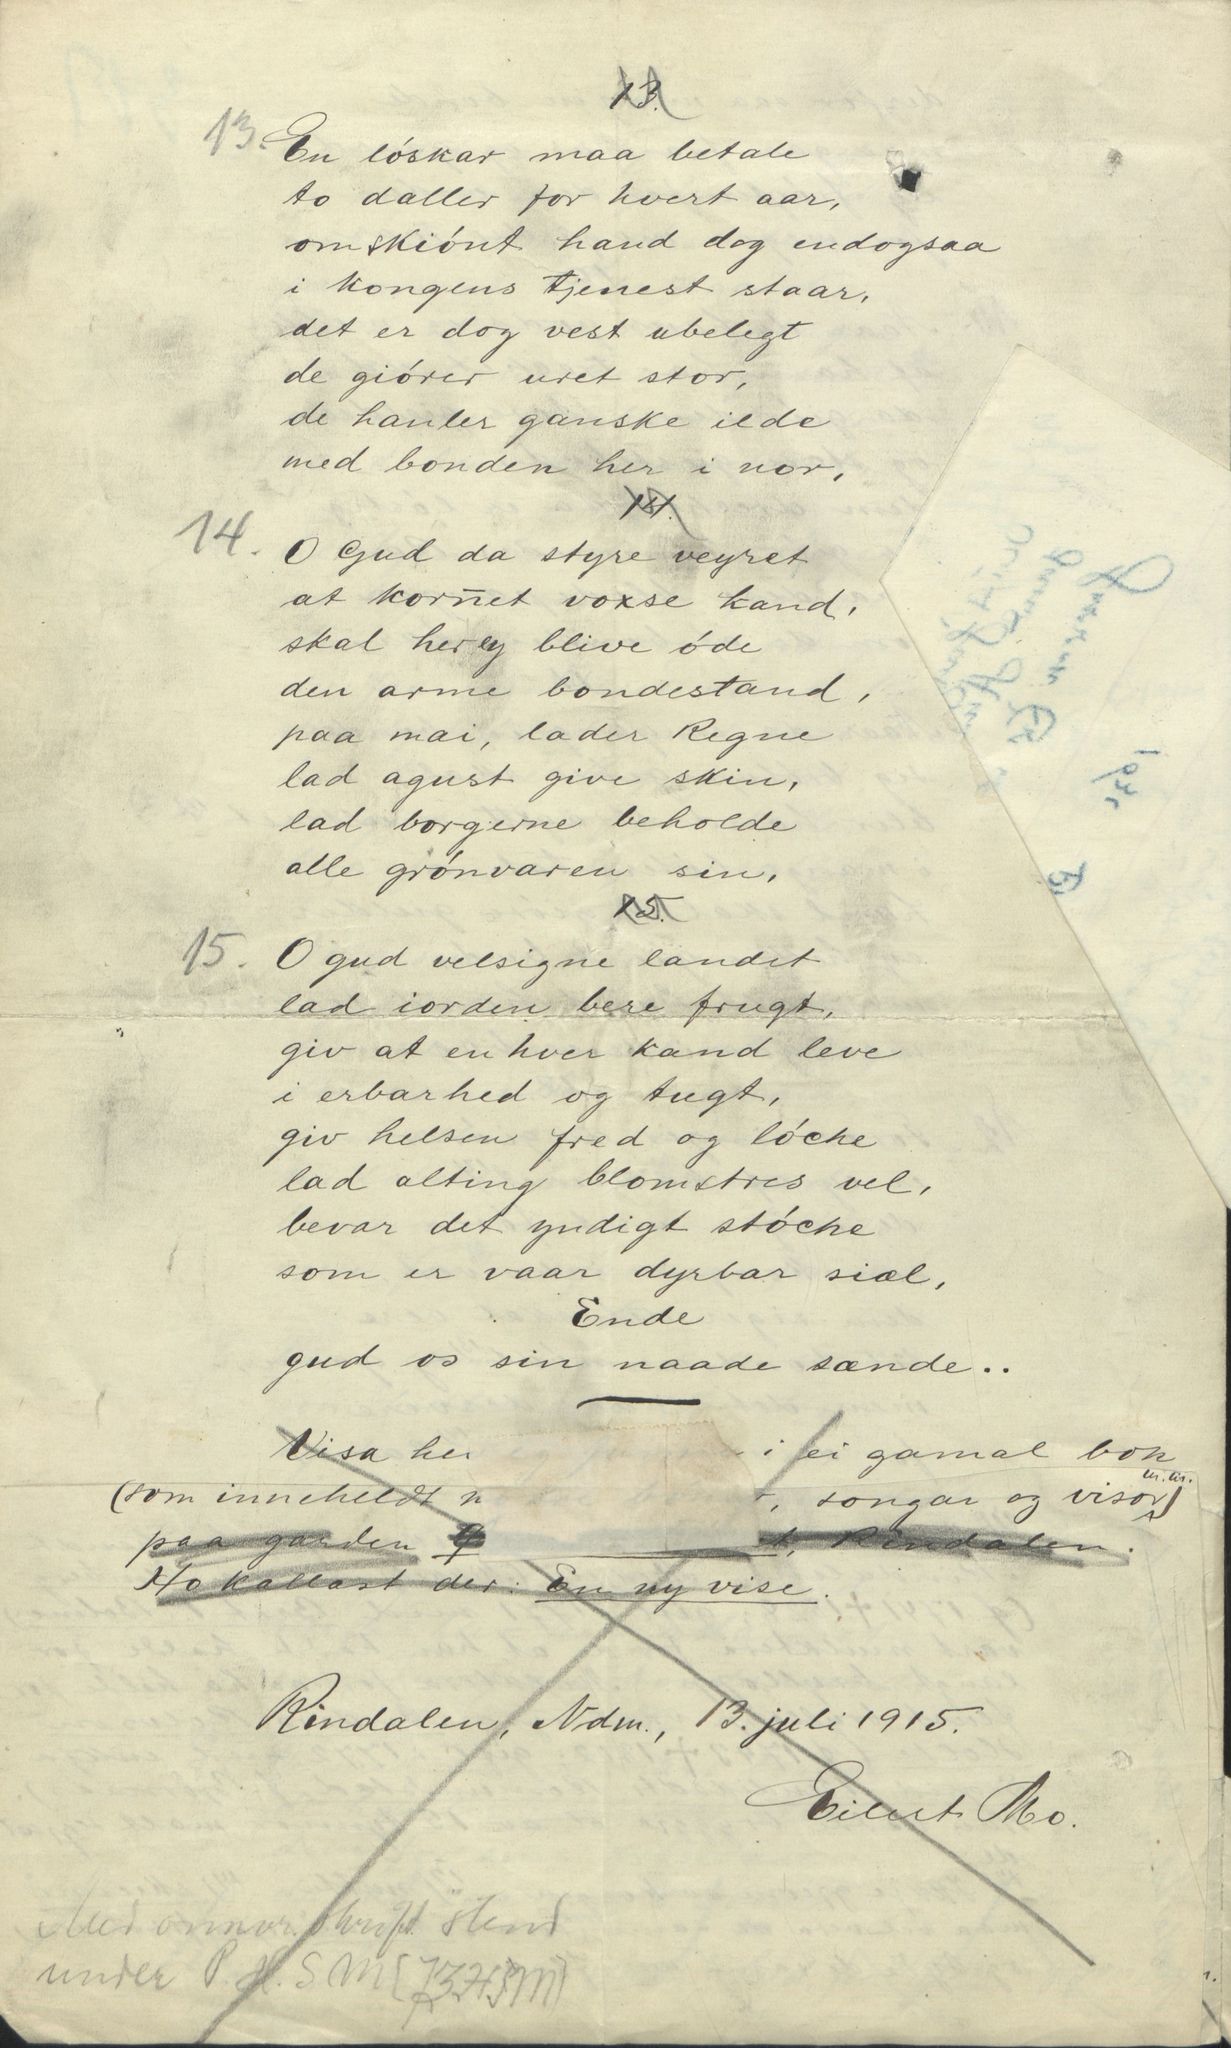 13.
13. En lóskar maa betale
to daller for hvert aar,
omskiónt hand dog endogsaa
i kongens tjenest staar,
det er dog vest ubelegt
de giórer uret stor,
de hanler ganske ilde
med bonden her i nor,
14.
14. O Gud da styre veyret
at korn̄et voxse kand,
skal her ey blive óde
den arme bondestand,
paa mai, lader Regne
lad agust give skin,
lad borgerne beholde
alle grónvaren sin,
15.
15. O gud velsigne landet
lad iorden bere frugt,
giv at en hver kand leve
i erbarhed og tugt,
giv helsen fred og lóche
lad alting blomstres vel,
bevar det yndigt stóche
som er vaar dyrbar siæl,
Ende
gud os sin naade sænde..
Visa her i ei gamal bok
(som inneheldt songar og visor)
m.m.
paa garden Rindalen.
Ho kallast der: En ny vise.
Rindalen, Ndm., 13. juli 1915.
Eilert Mo.
Med onnor skrift stend
under P. H. S. M
1930